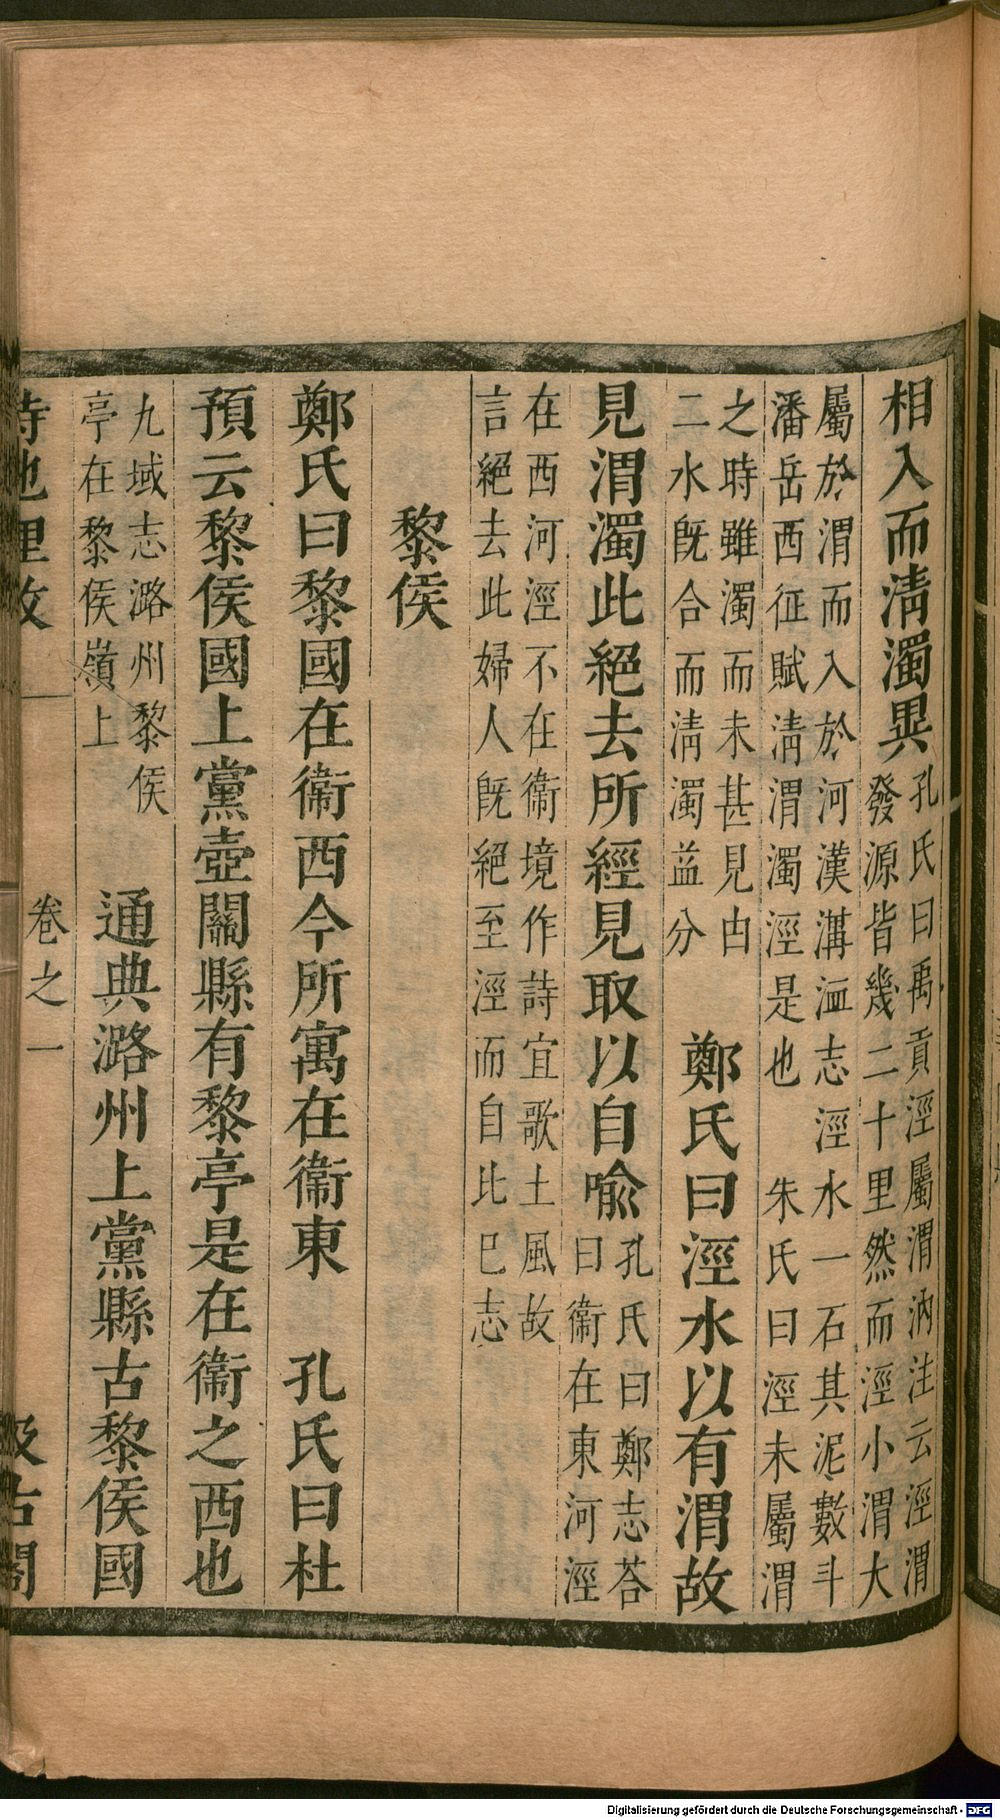 相入而淸濁異孔氏曰禹貢涇屬渭汭注云涇渭
發源皆幾二十里然而涇小渭大
屬於渭而入於河漢溝洫志涇水一石其泥數斗
潘岳西征賦淸渭濁涇是也 朱氏曰涇未屬渭
之時雖濁而未甚見由
二水旣合而淸濁益分 鄭氏曰涇水以有渭故
見渭濁此絕去所經見取以自喻孔氏曰鄭志荅
曰衞在東河涇
在西河涇不在衞境作詩宜歌土風故
言絕去此婦人旣絕至涇而自比巳志
黎侯
鄭氏曰黎國在衞西今所寓在衞東 孔氏曰杜
預云黎侯國上黨壺關縣有黎亭是在衞之西也
九域志潞州黎侯
亭在黎侯嶺上 通典潞州上黨縣古黎侯國
詩地理攷 卷之一 汲古閣
Digitalisierung gefördert durch die Deutsche Forschungsgemeinschaft - DFG